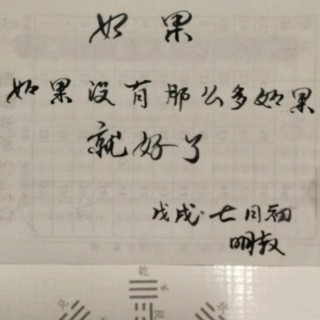 如果
如果没有那么多如果
就好了
戊戌·七月初
明敖
乾